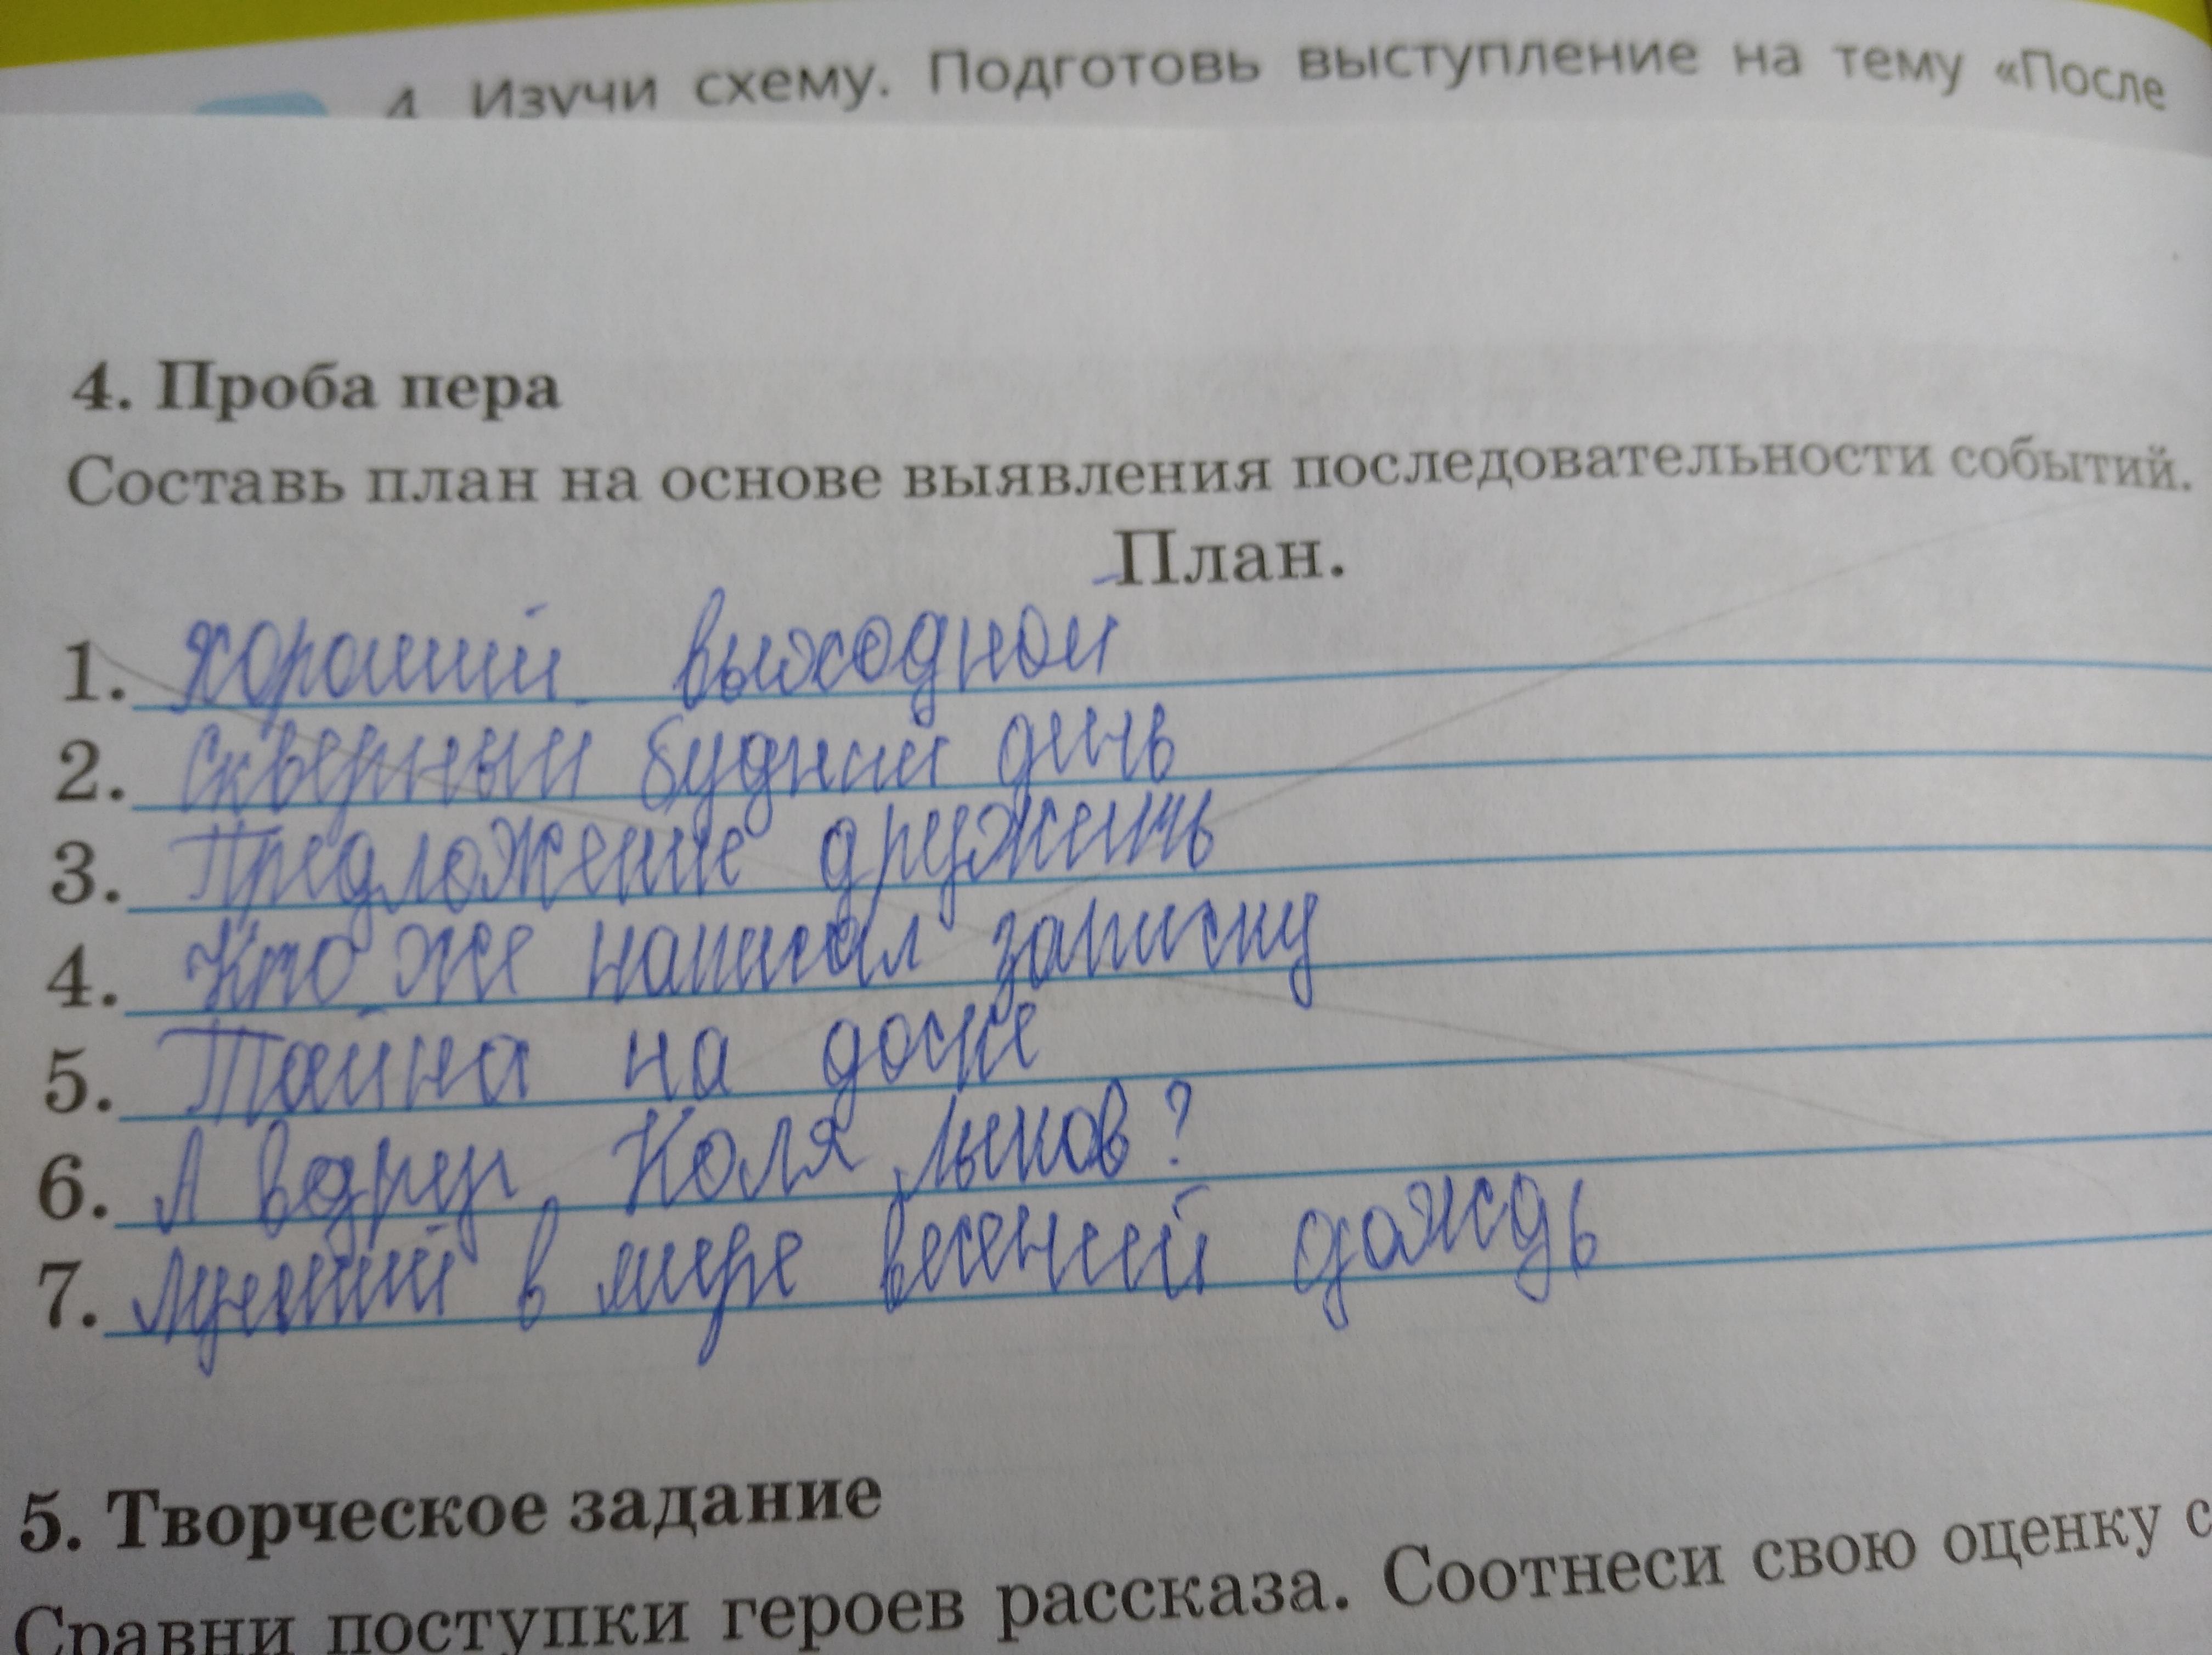 4 Изучи схему. Подготовь выступление на тему «После
4. Проба пера
Составь план на основе выявления последовательности событий.
План.
1. Хороший выходной
2. Скверный будний день
3. Предложение дружить
4. Кто же написал записку
5. Тайна на доске
6. А вдруг Коля Лыков?
7. Лучший в мире весений дождь
5. Творческое задание
Сравни поступки героев рассказа. Соотнеси свою оценку с